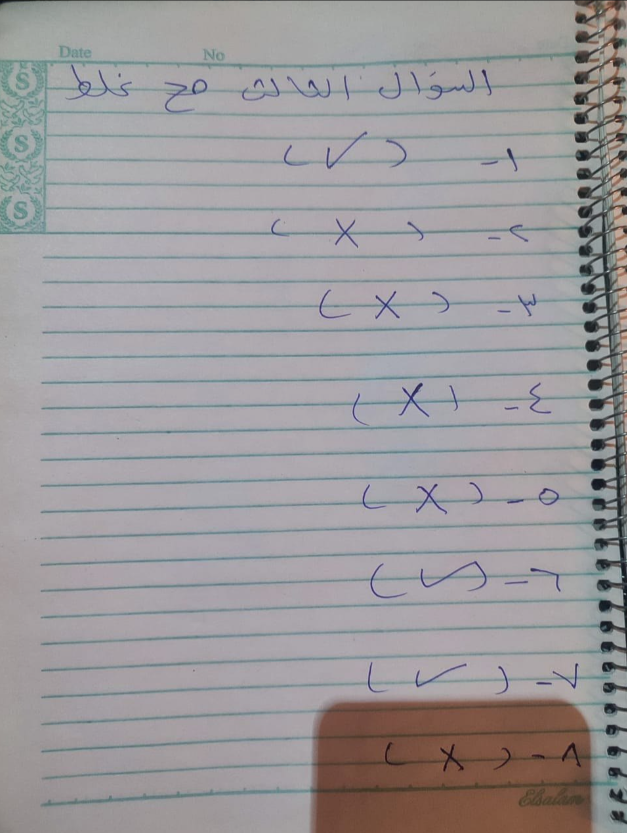 Date No
السؤال الثالث صح غلط
١- (✓)
٢- (X)
٣- (X)
٤- (X)
٥- (X)
٦- (✓)
٧- (✓)
٨- (X)
Elsalam
S
S
S